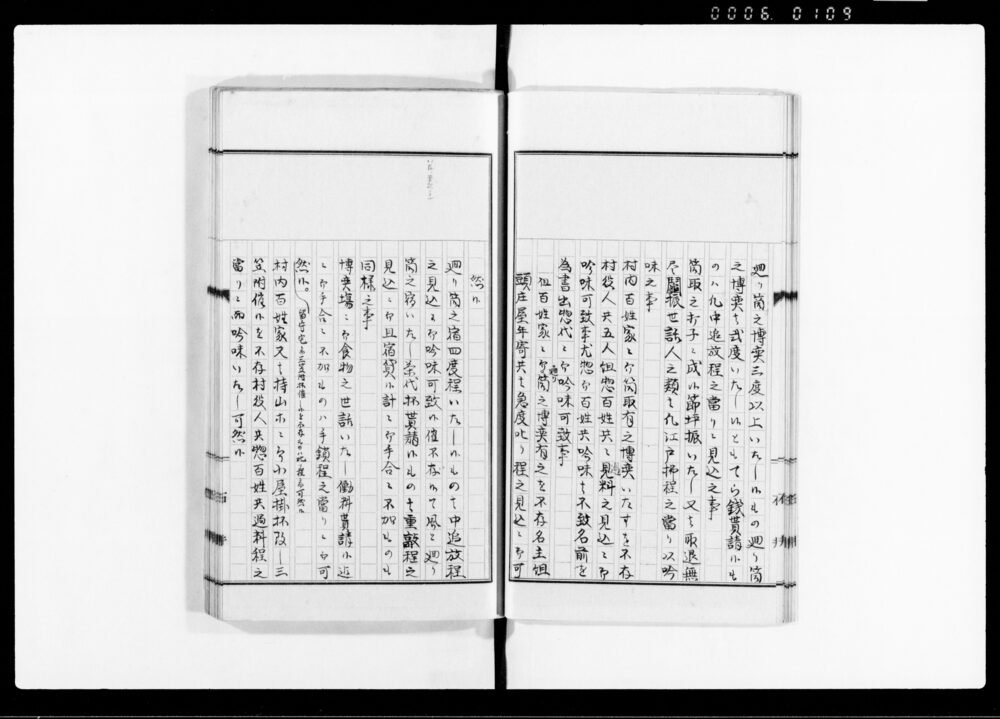 0006.0109
廻り筒之博奕三度以上いたし候もの廻り筒
之博奕は弐度いたし候とも てら銭貰請候も
の八九中追放程之當りニ見込之事
筒取之弟子ニ成候節坪振いたし又は取退無
尽鬮振世話人之類は九江戸拂程之當り以吟
味之事
村内百姓家ニ而筒取有之博奕いたすを不存
村役人共五人組惣百姓共ニ過料之見込ニ而
吟味可致事尤惣而百姓共吟味は不致名前を
為書出惣代ニ而吟味可致事
但百姓家ニ而廻り筒之博奕有之を不存名主組
頭庄屋年寄共は急度叱り程之見込ニ而可
然候
廻り筒之宿四度程いたし候もの は中追放程
之見込ニ而吟味可致候催不存候て風と廻り
筒之宿いたし茶代杯貰請候もの は重敲程之
見込ニ而且宿貸候計ニ而手合ニ不加ものも
同様之事
博奕場ニ而食物之世話いたし働料貰請候迄
ニ而手合ニ不加ものハ手鎖程之當りニ而可
然候。
村内百姓家又は持山ホニ而小屋掛杯致し三
笠附催候を不存村役人共惣百姓共過料程之
當りニ而吟味いたし可然候